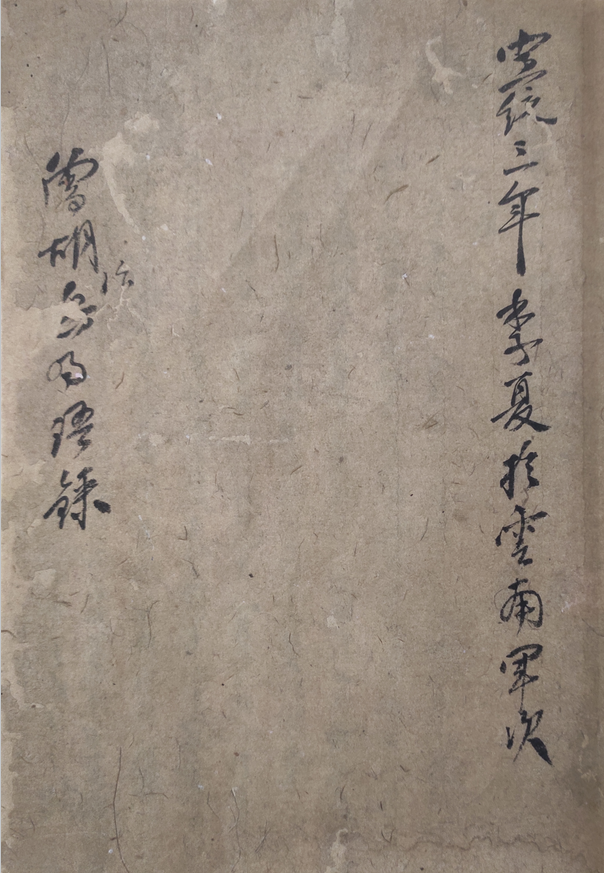 宣統三年季夏於雲南軍次
曾胡治兵語錄